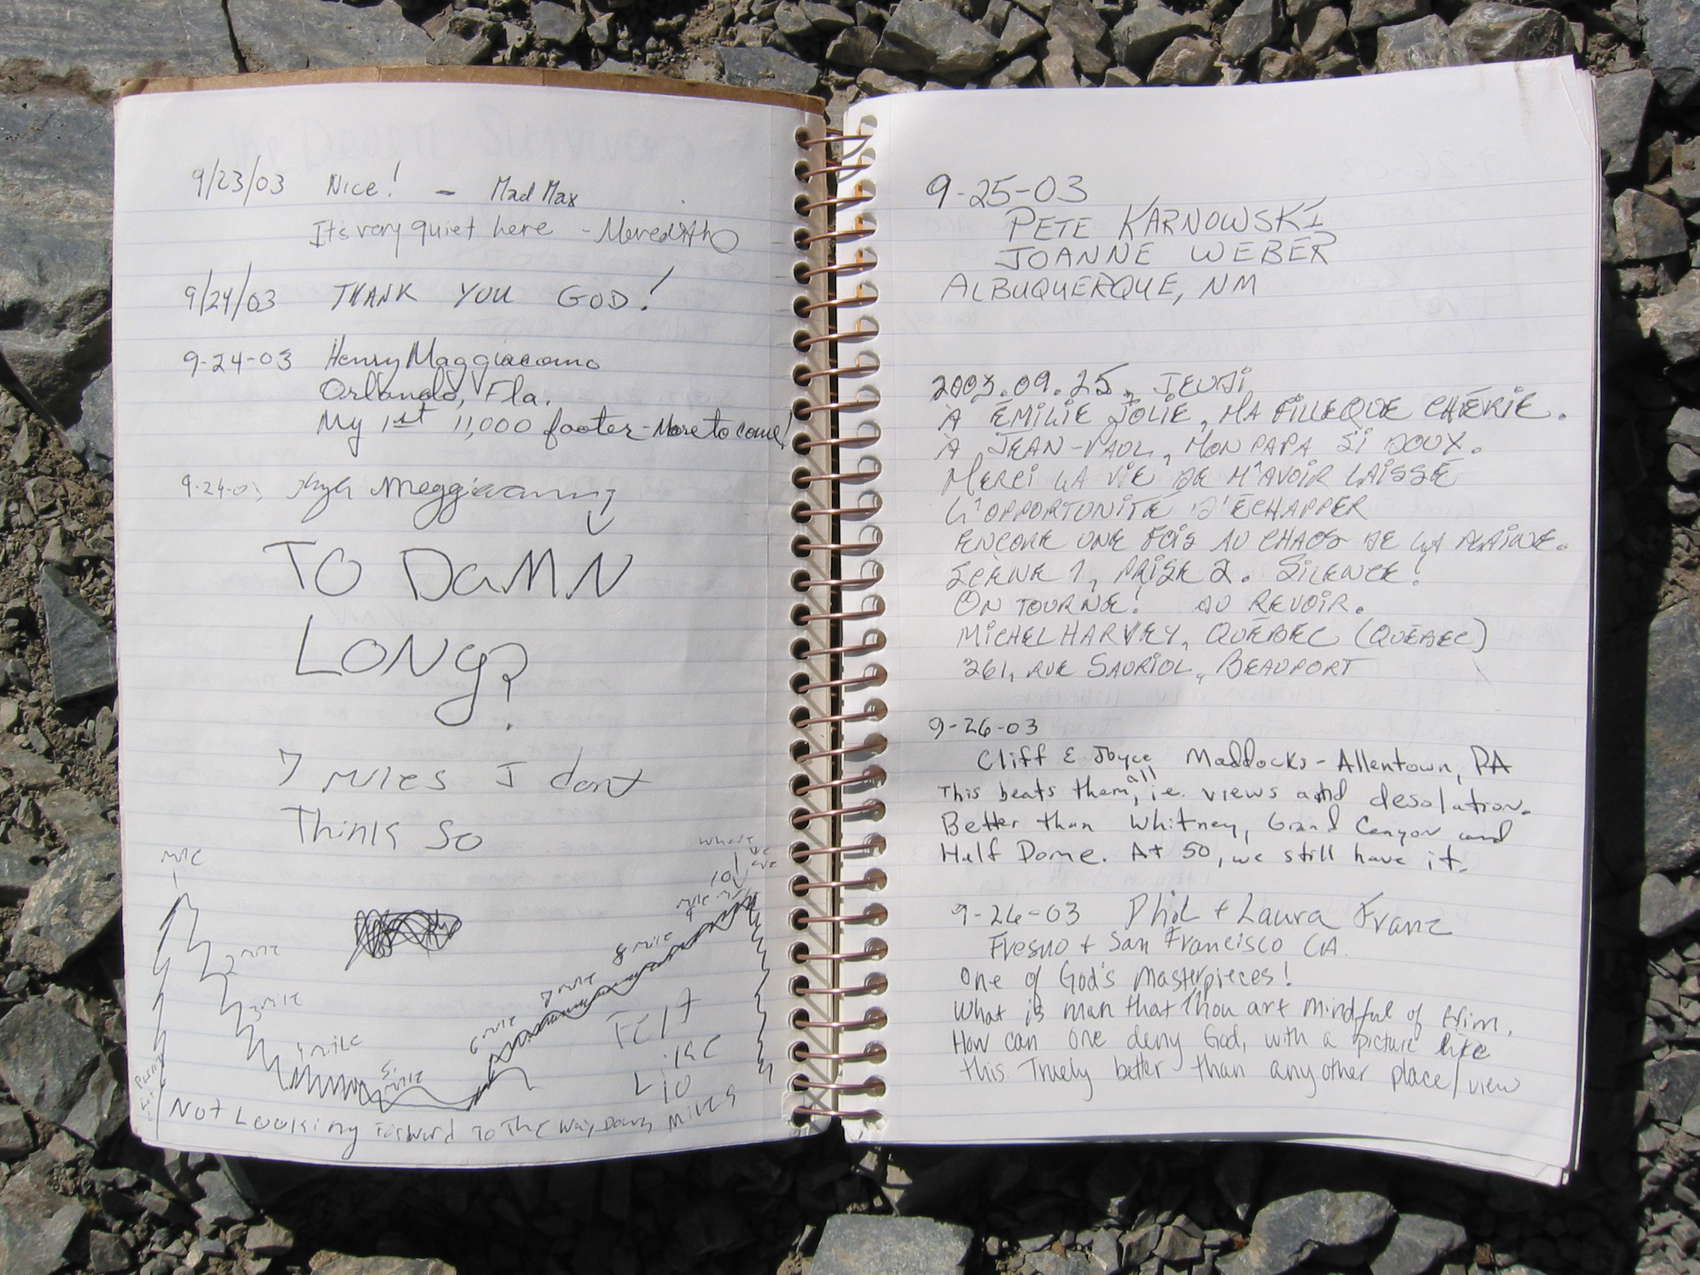 9/23/03 Nice! - Mad Max
It's very quiet here -
9/24/03 THANK YOU GOD!
9-24-03 Henry Maggiacomo
Orlando, Fla.
My 1st 11,000 footer - More to come!
9-24-03
TO DaMN
LONg?
7 miles I dont
Think so
mile
2 mile
3 mile
4 mile
5 mile
6 mile
7 mile
8 mile
mile 9
10
where we are
Felt
Like
10
miles
Not Looking forward to The way Down
9-25-03
PETE KARNOWSKI
JOANNE WEBER
ALBUQUERQUE, NM
2003.09.25, JEUDI
À ÉMILIE JOLIE, MA FILLEQUE CHÉRIE.
À JEAN-PAUL, MON PAPA SI DOUX.
MERCI LA VIE DE M'AVOIR LAISSÉ
L'OPPORTUNITÉ D'ÉCHAPPER
ENCORE UNE FOIS AU CHAOS DE LA PLAINE.
SCÈNE 1, PRISE 2. SILENCE!
ON TOURNE! AU REVOIR.
MICHEL HARVEY, QUÉBEC (QUÉBEC)
261, RUE SAURIOL, BEAUPORT
9-26-03
Cliff & Joyce Maddocks - Allentown, PA
This beats them all, i.e. views and desolation.
Better than Whitney, Grand Canyon and
Half Dome. At 50, we still have it.
9-26-03 Phil + Laura Franz
Fresno + San Francisco CA.
One of God's Masterpieces!
What is man that Thou art mindful of Him.
How can one deny God, with a picture like
this Truely better than any other place/view